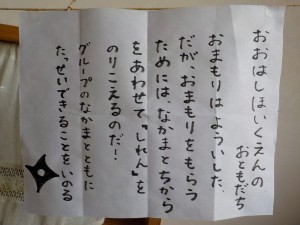 おおはしほいくえんの
おともだち
おまもりはよういした。
だが、おまもりをもらう
ためには、なかまとちから
をあわせて『しれん』を
のりこえるのだ！
グループのなかまとともに
たっせいできることをいのる